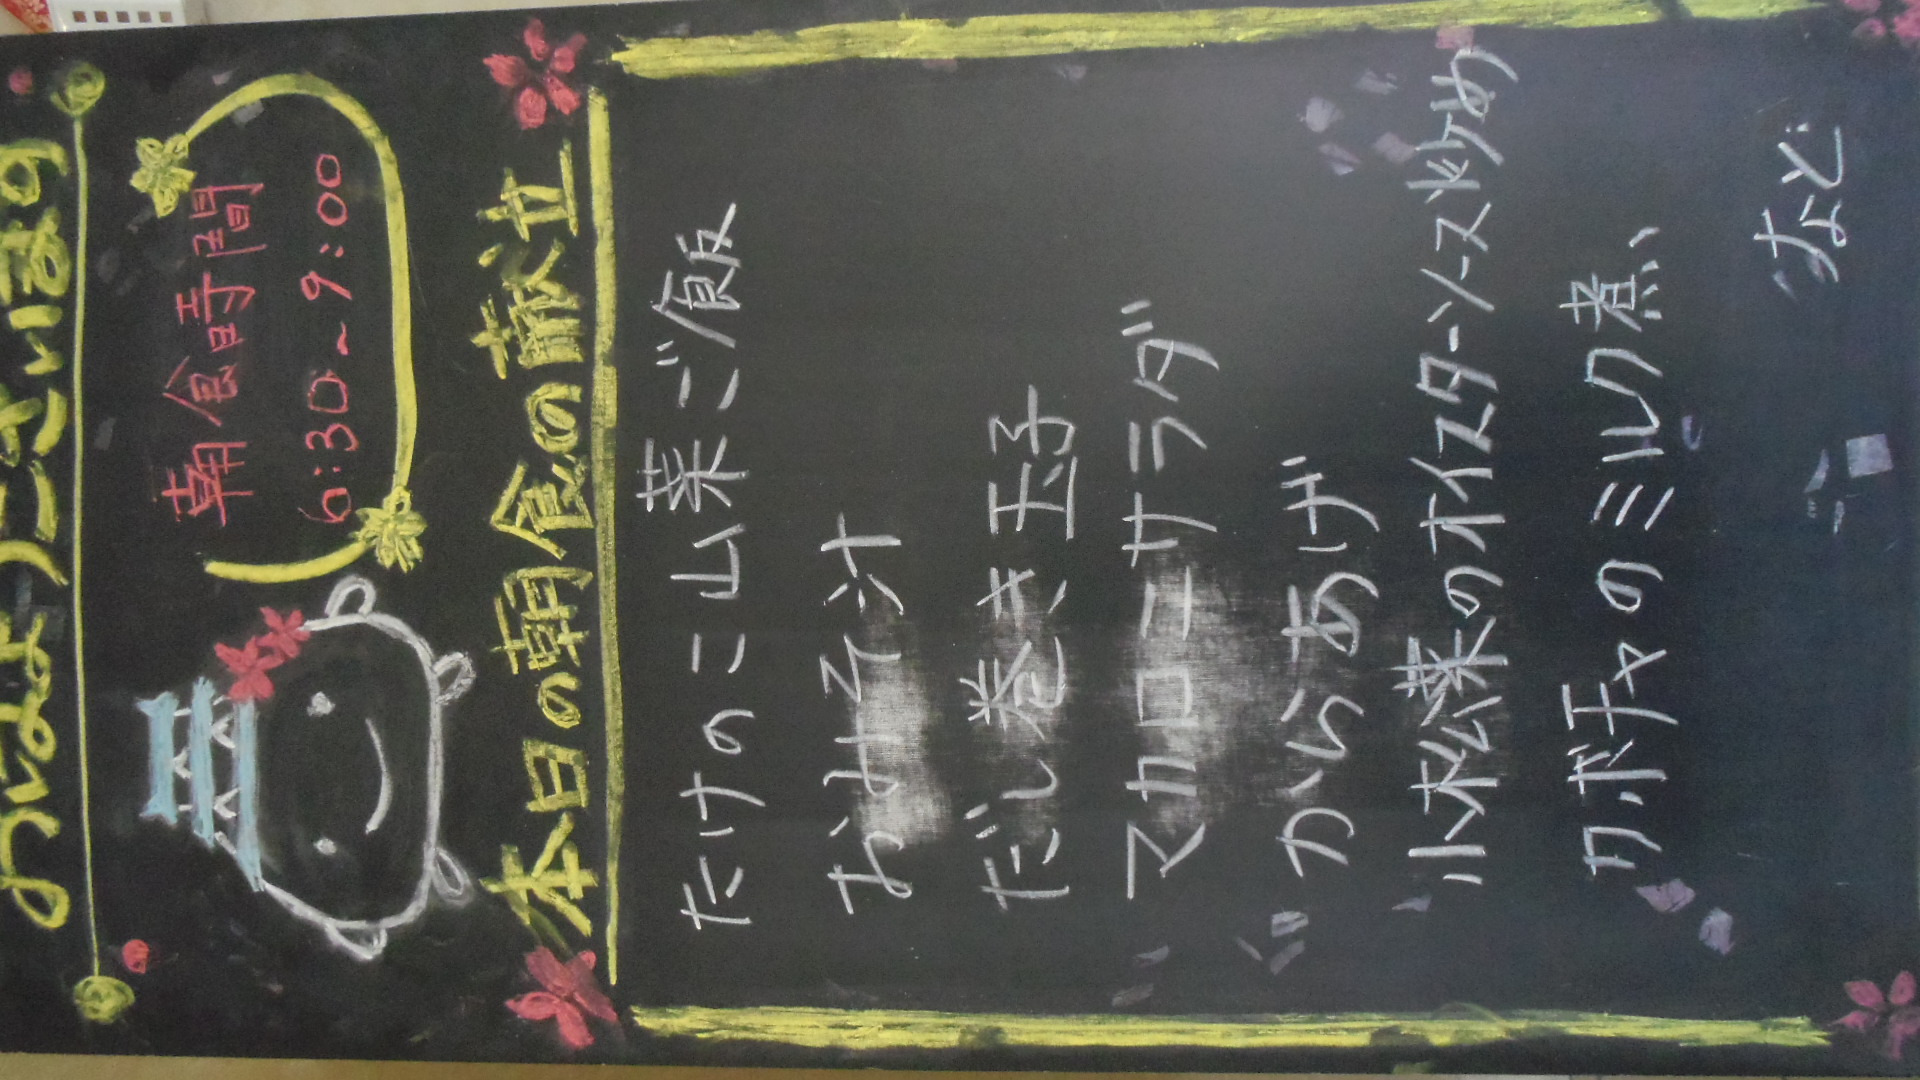 おはようございます
朝食時間
6:30~9:00
本日の朝食の献立
たけのこ山菜ご飯
おみそ汁
だし巻き玉子
マカロニサラダ
からあげ
小松菜のオイスターソース炒め
カボチャのミルク煮、
など